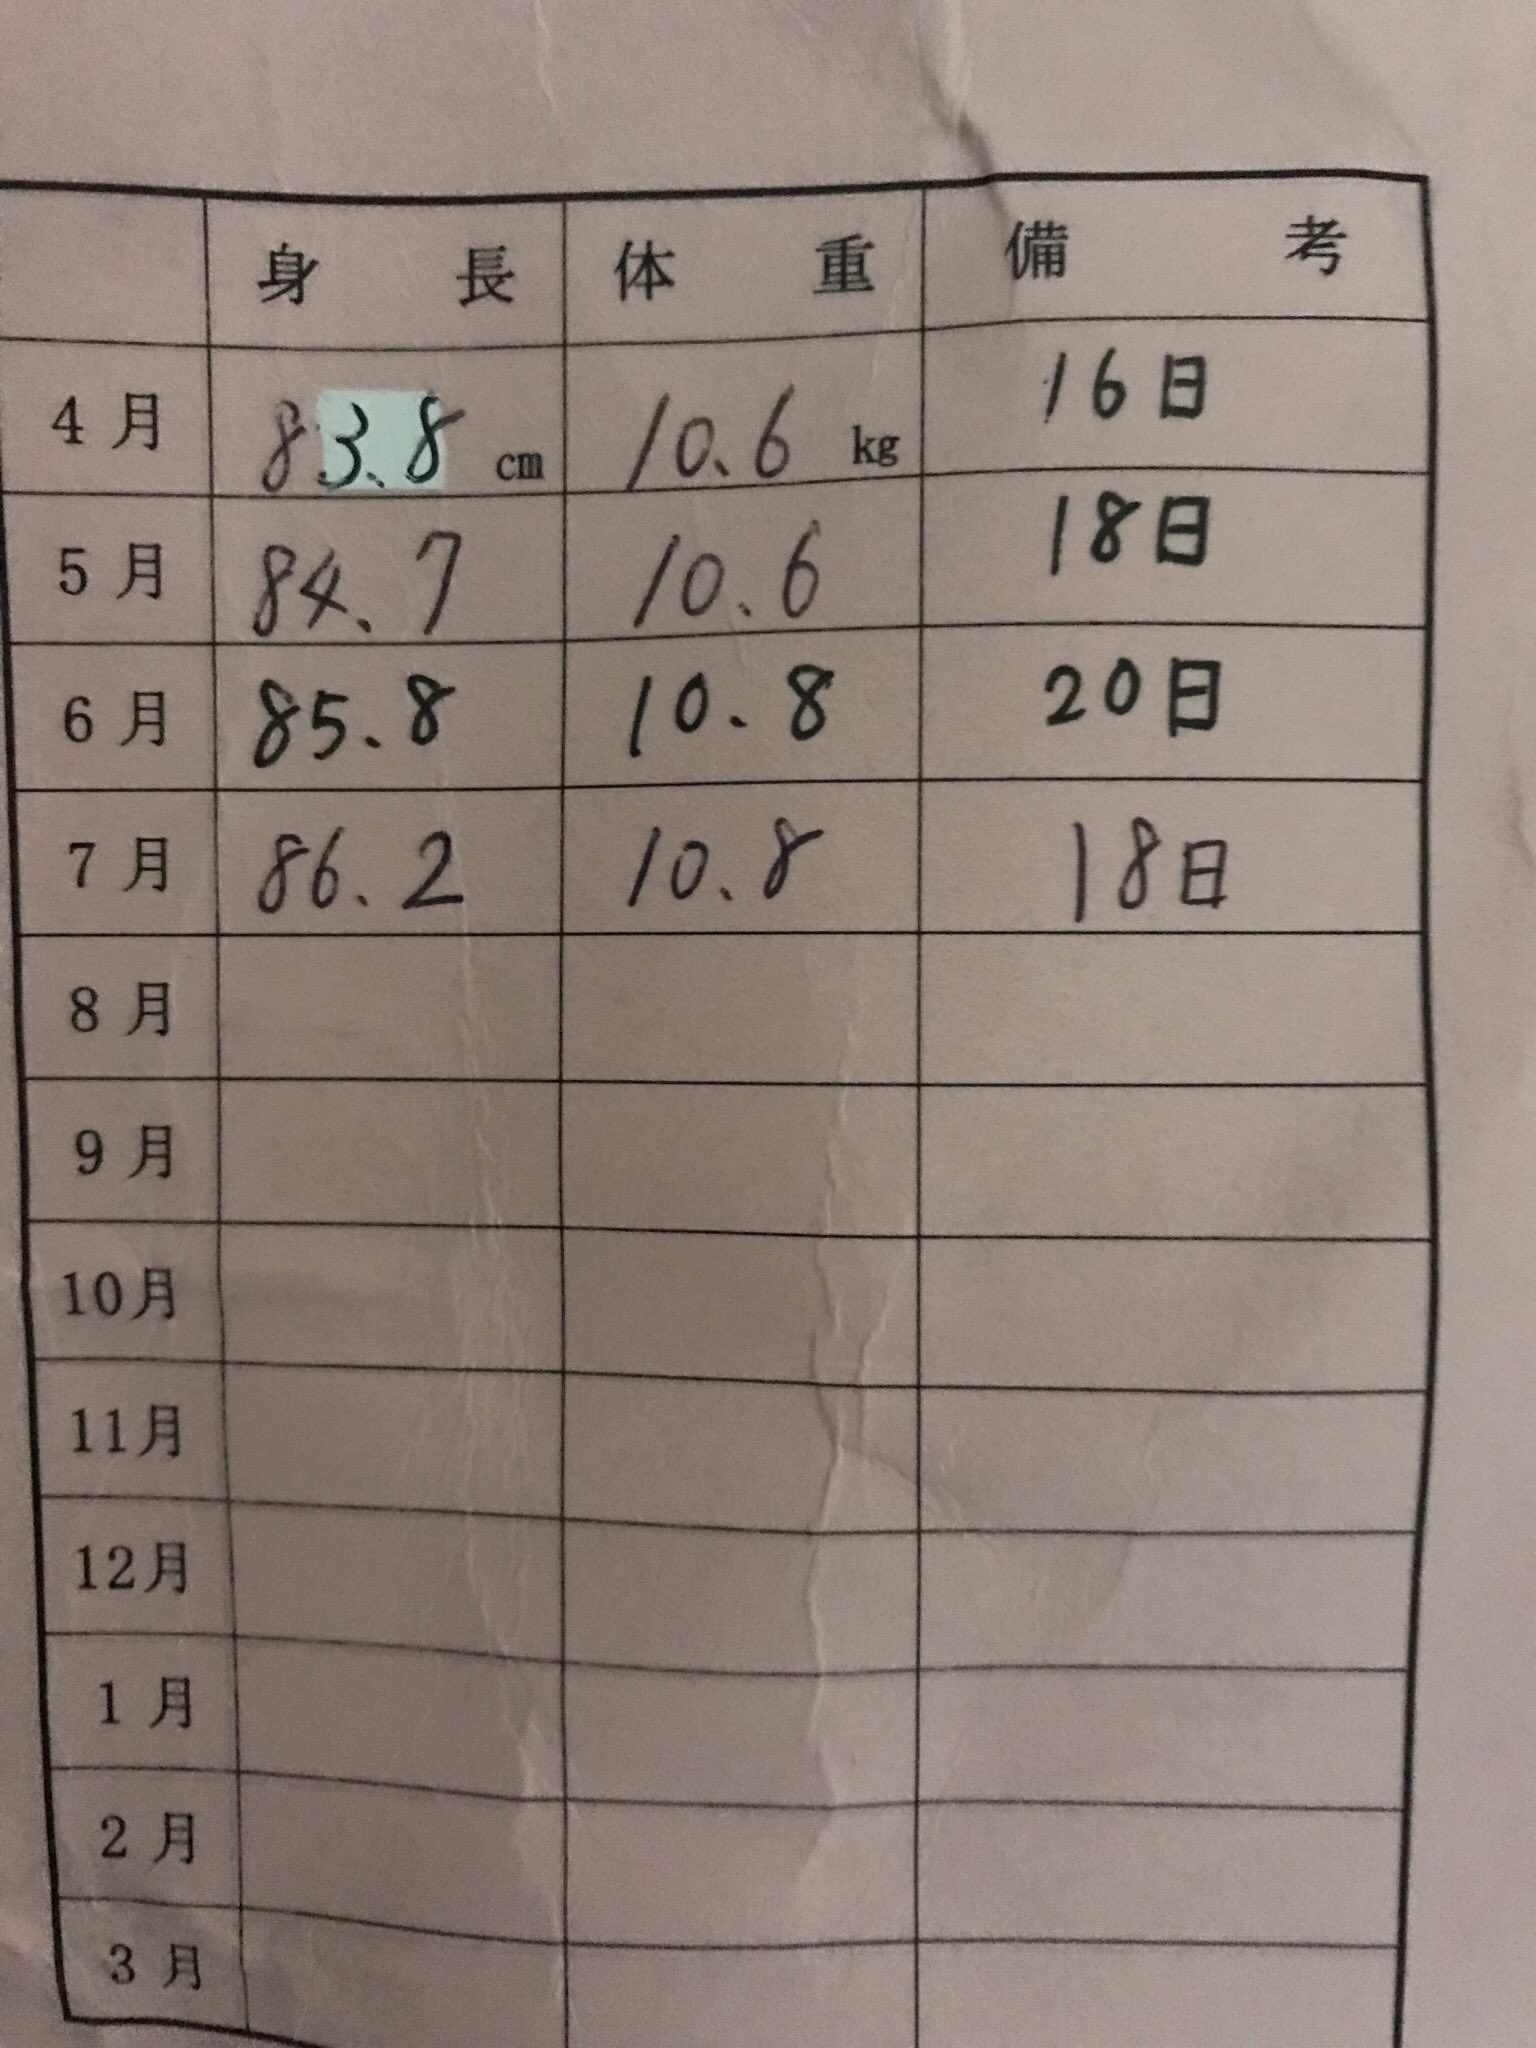 身長 体重 備考
4月 83.8 cm 10.6 kg 16日
5月 84.7 10.6 18日
6月 85.8 10.8 20日
7月 86.2 10.8 18日
8月
9月
10月
11月
12月
1月
2月
3月